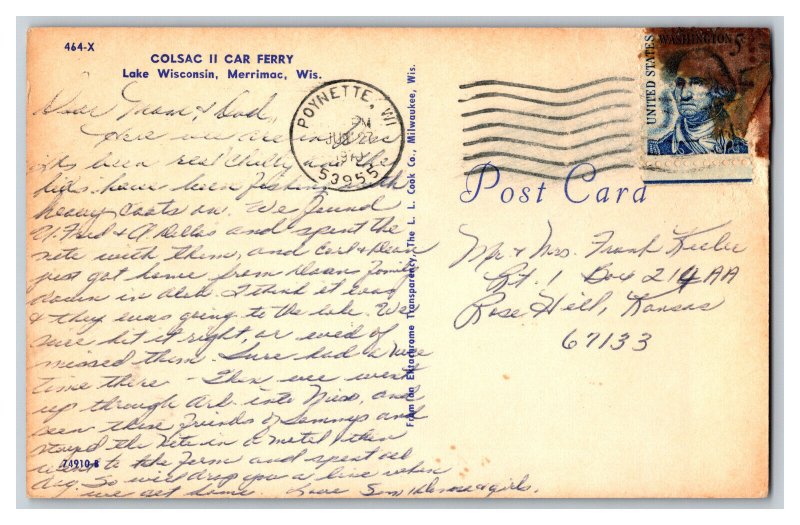 464-X
COLSAC II CAR FERRY
Lake Wisconsin, Merrimac, Wis.
POYNETTE, WI
PM
JUN 27
53955
UNITED STATES
WASHINGTON 5
From an Ektachrome Transparency, The L. L. Cook Co., Milwaukee, Wis.
Post Card
Dear Mom & Dad,
Here we are in
its been real chilly and the
have been fishing with
heavy coats on. We found
U. Fred & A Dellas and spent the
nite with them, and Carl & Dean
just got home from Deans family
down in Okla. I think it was
& they was going to the lake. We
sure hit it right, or we'd of
missed them. Sure had a nice
time there - Then we went
up through Ark. into Miss, and
seen these friends of Sammys and
stayed the nite in a motel then
went to the farm and spent all
day. So will drop you a line when
we get home. Love Sam & girls.
74910-B
Mr & Mrs. Frank Keeler
Rt. 1 Box 214AA
Rose Hill, Kansas
67133